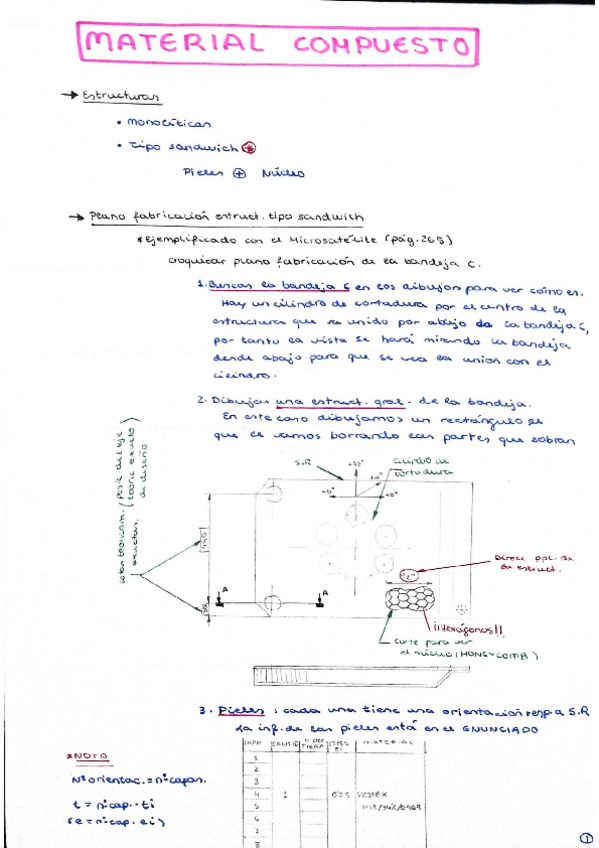 MATERIAL COMPUESTO
→ Estructuras
• Monolíticas
• Tipo sandwich *
Pieles + Núcleo
→ Plano fabricación estruct. tipo sandwich
* Ejemplificado con el Microsatélite (pág. 265)
croquizar plano fabricación de la bandeja C.
1. Buscas la bandeja C en los dibujos para ver cómo es.
Hay un cilindro de cortadura por el centro de la
estructura que va unido por abajo de la bandeja C,
por tanto la vista se hará mirando la bandeja
desde abajo para que se vea la unión con el
cilindro.
2. Dibujas una estruct. gral. de la bandeja.
En este caso dibujamos un rectángulo al
que le vamos borrando las partes que sobran
S.R
cilindro de
cortadura
A
A
Direcc. ppl. de
la estruct.
¡¡Hexágonos!!
corte para ver
el núcleo (HONEYCOMB)
3. Pieles: cada una tiene una orientación resp. a S.R
La inf. de las pieles está en el ENUNCIADO
*NOTA
Nº orientac. = nº capas.
t = nº cap. · ti
CAPA CANTID MATERIAL
1
2
3
4 1
5
6
7
8
1